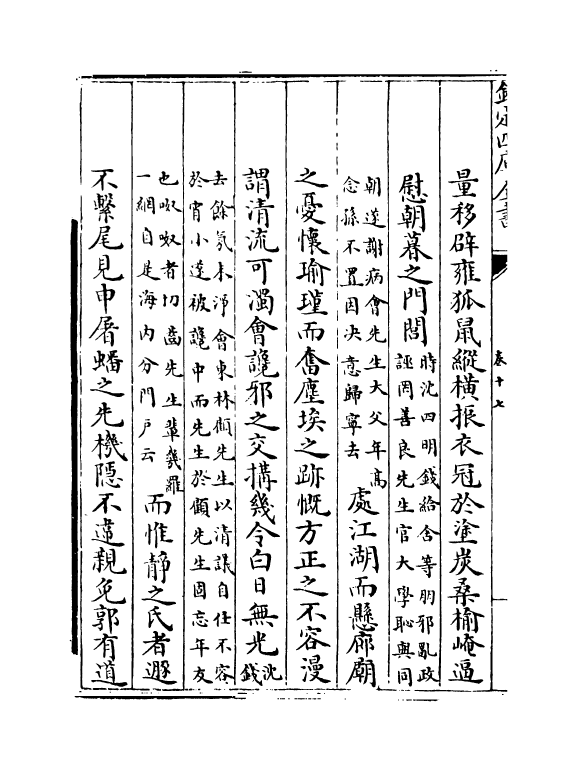 欽定四庫全書
卷十七
量移辟雍狐鼠縱橫振衣冠於塗炭桑榆崦逼
慰朝暮之門閭時沈四明錢給舍等朋邪亂政
誣罔善良先生官大學恥與同
朝遂謝病會先生大父年高
念孫不置因决意歸寧去處江湖而懸廊廟
之憂懷瑜瑾而奮塵埃之跡慨方正之不容漫
謂清流可濁會讒邪之交搆幾令白日無光沈
錢
去餘氛未淨會東林顧先生以清議自任不容
於宵小遂被讒申而先生於顧先生固忘年友
也呶呶者切齒先生輩幾羅
一網自是海内分門户云而惟靜之氏者遯
不繫尾見申屠蟠之先機隱不違親免郭有道